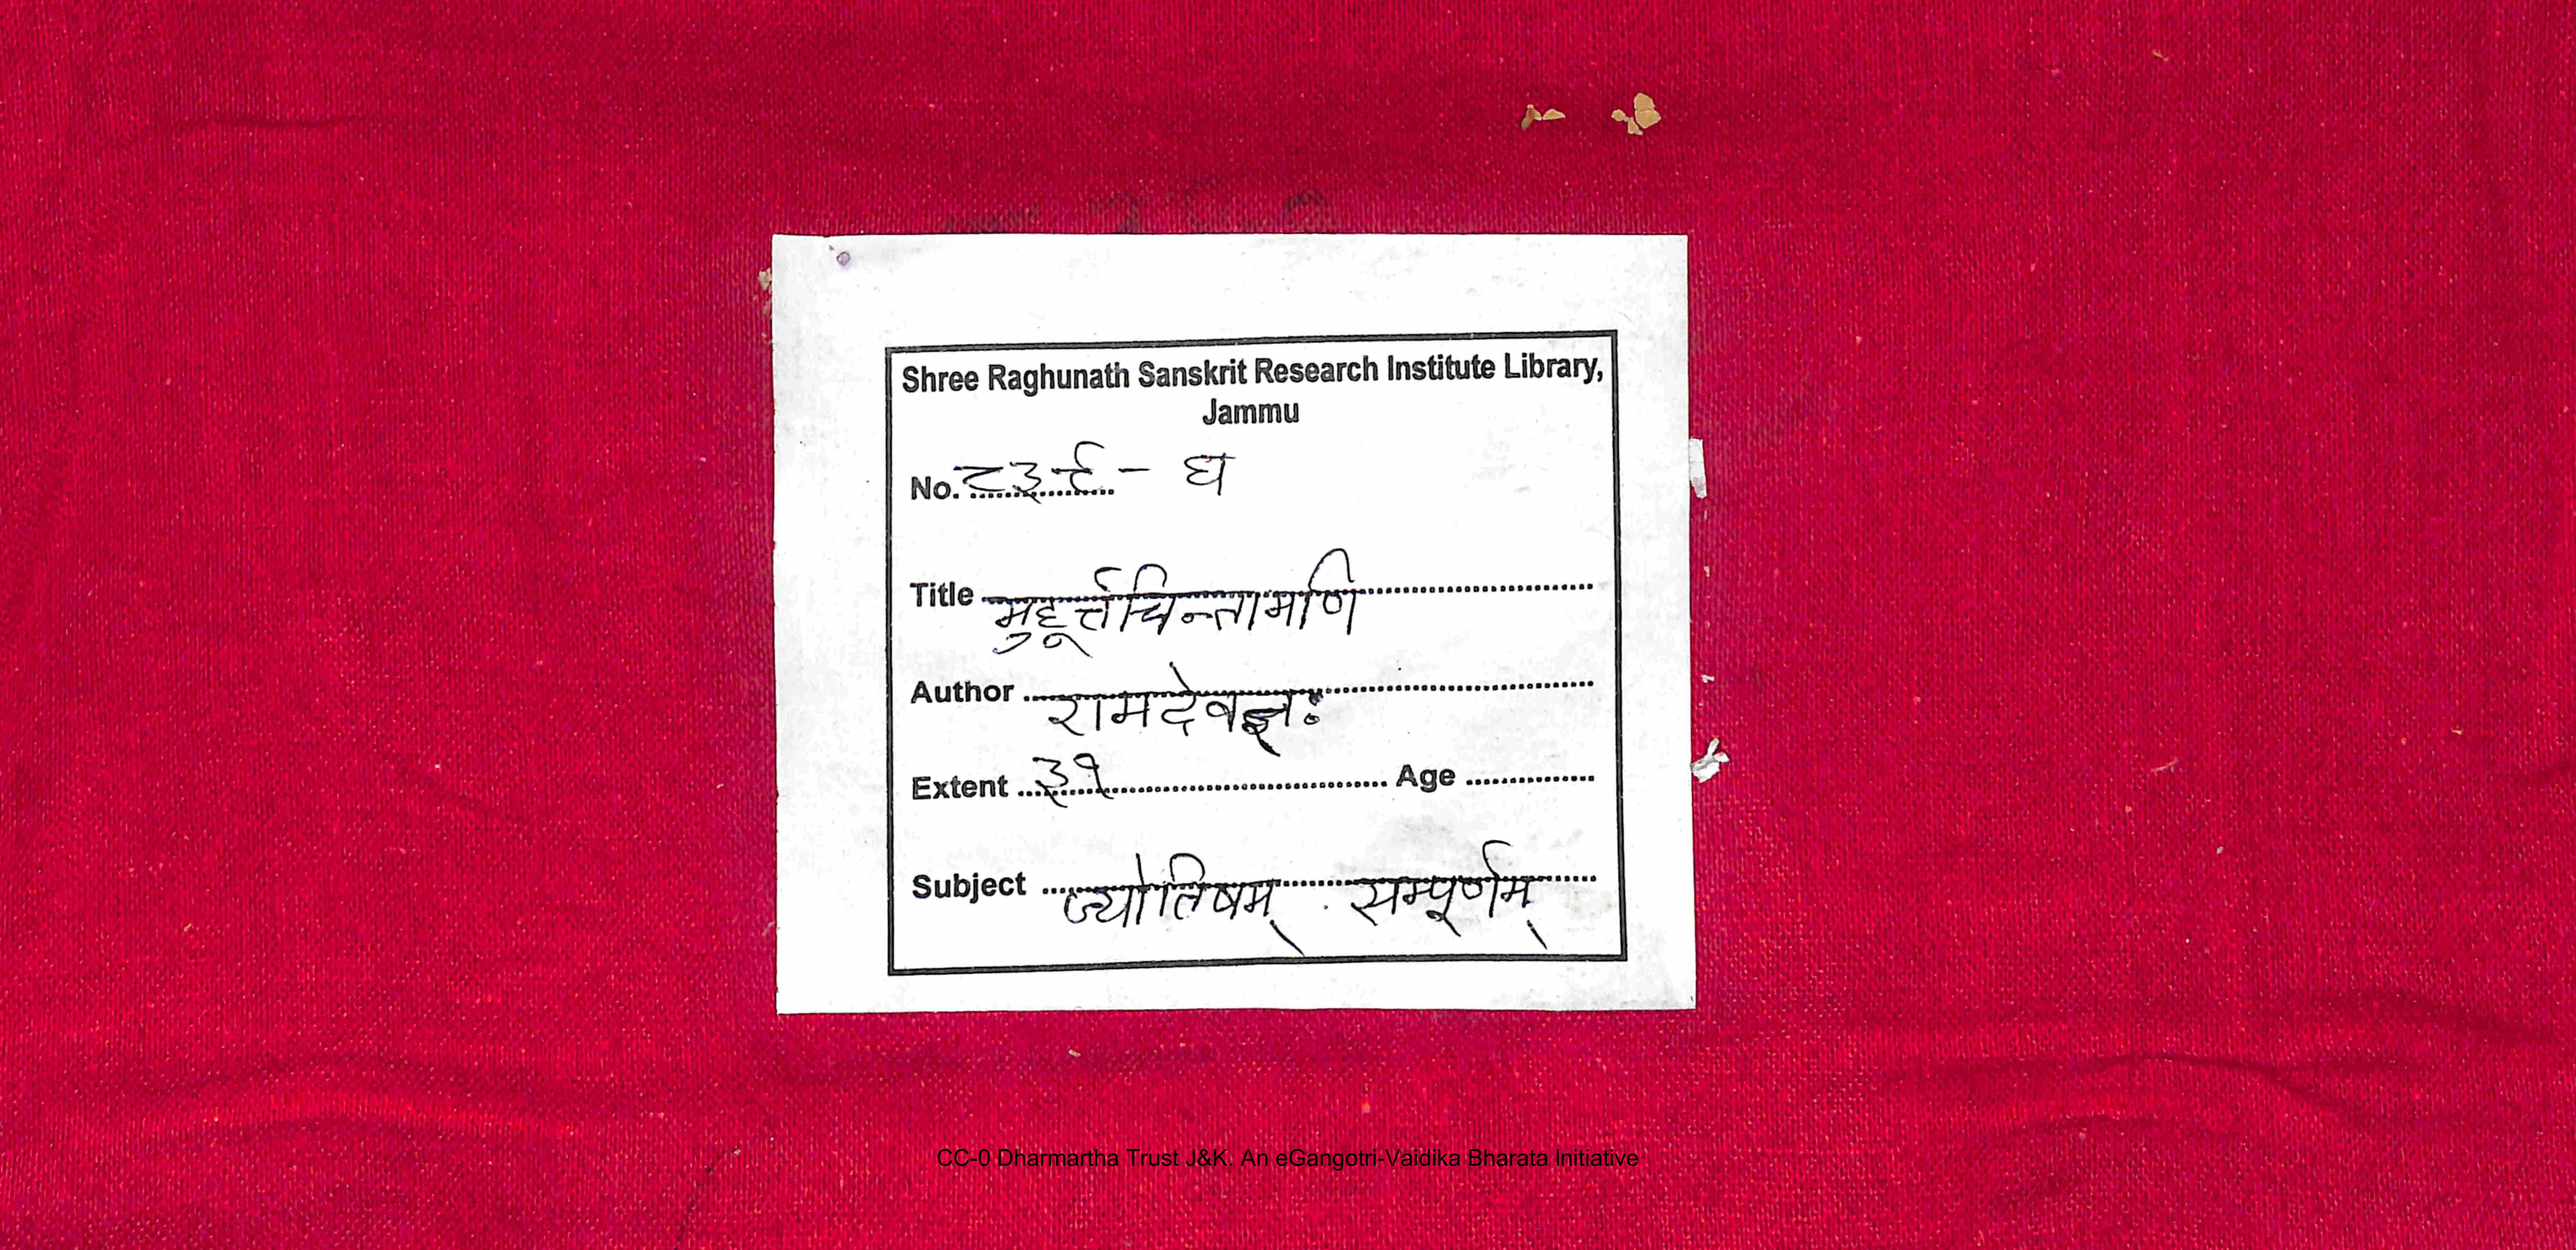 Shree Raghunath Sanskrit Research Institute Library,
Jammu
No. ८३९ - घ
Title मुहूर्त्तचिन्तामणि
Author रामदेवज्ञः
Extent ३१ Age
Subject ज्योतिषम् . सम्पूर्णम्
CC-0 Dharmartha Trust J&K. An eGangotri-Vaidika Bharata Initiative